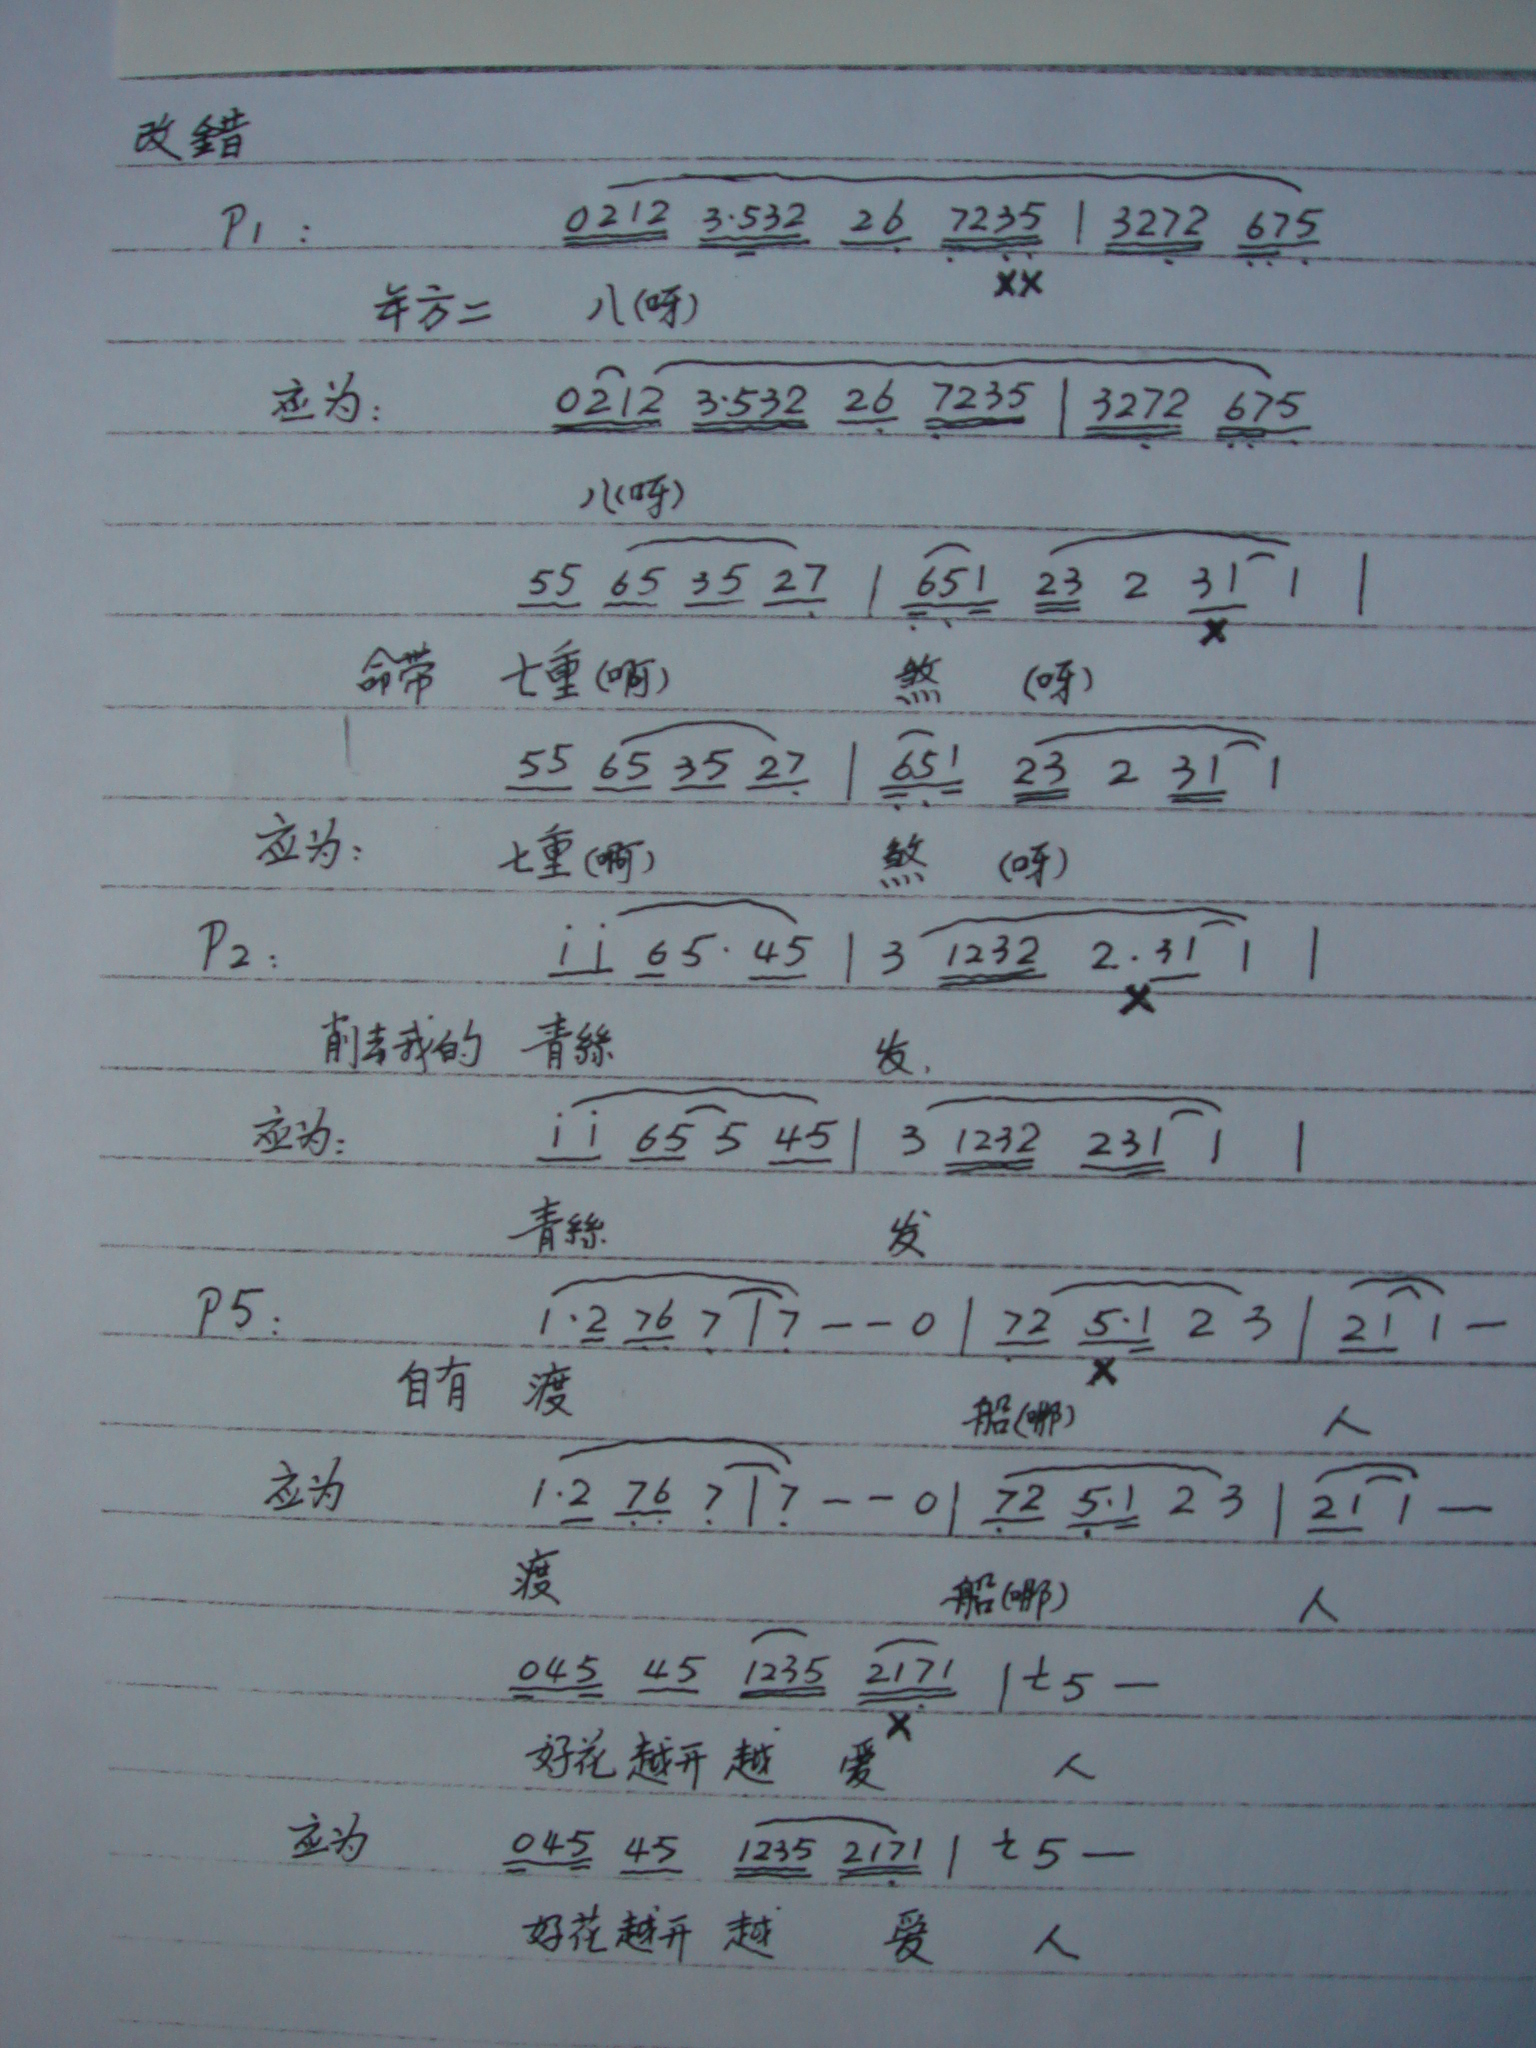 改錯
P1: 0212 3·532 26 7235 | 3272 675
××
年方二 八(呀)
应为: 0212 3·532 26 7235 | 3272 675
八(呀)
55 65 35 27 | 651 23 2 31 1 |
×
命带 七重(啊) 煞 (呀)
55 65 35 27 | 651 23 2 31 1
应为: 七重(啊) 煞 (呀)
P2: i i 65· 45 | 3 1232 2·31 1 |
×
削去我的 青絲 发.
应为: i i 65 5 45 | 3 1232 231 1 |
青絲 发
P5: 1·2 76 7 | 7 - - 0 | 72 5·1 2 3 | 21 1 -
×
自有 渡 船(哪) 人
应为 1·2 76 7 | 7 - - 0 | 72 5·1 2 3 | 21 1 -
渡 船(哪) 人
045 45 1235 2171 | 七5 -
×
好花越开越 爱 人
应为 045 45 1235 2171 | 七5 -
好花越开越 爱 人